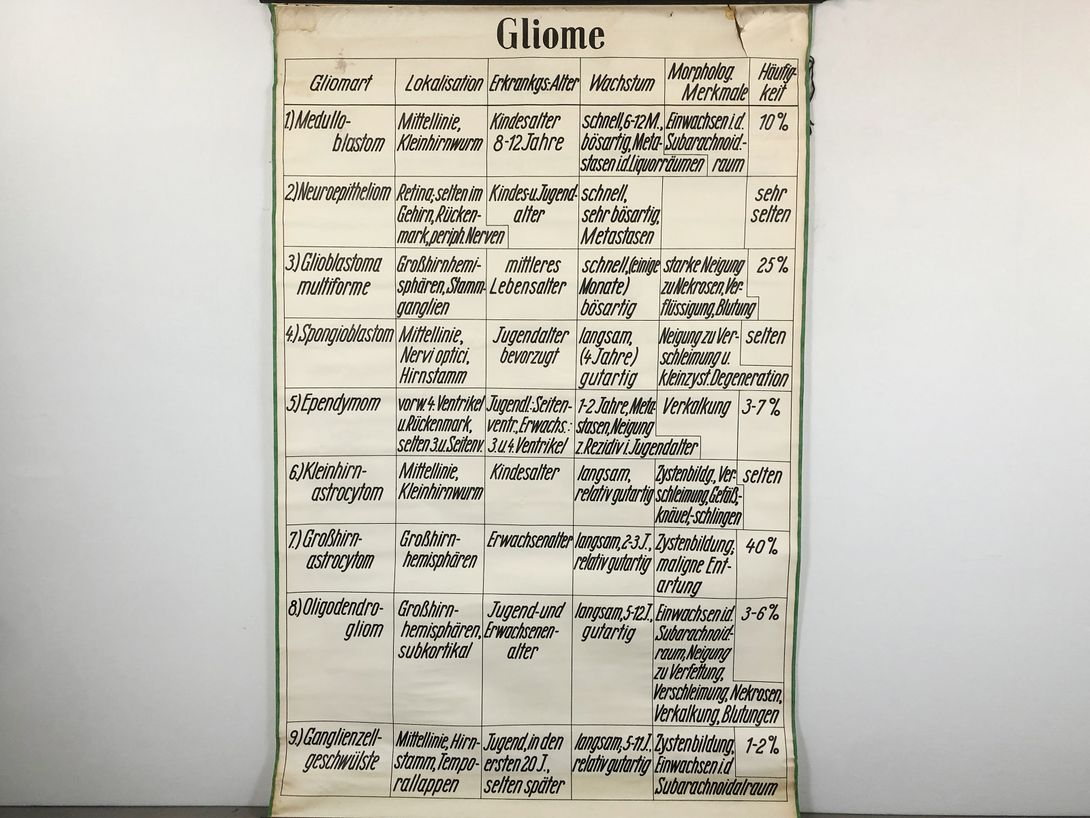 Gliome
Gliomart
Lokalisation
Erkrankgs.-Alter
Wachstum
Morpholog.
Merkmale
Häufig-
keit
1) Medullo-
blastom
Mittellinie,
Kleinhirnwurm
Kindesalter
8-12 Jahre
schnell, 6-12 M.,
bösartig, Meta-
stasen i.d. Liquorräumen
Einwachsen i.d.
Subarachnoid.-
raum
10%
2) Neuroepitheliom
Retina; selten im
Gehirn, Rücken-
mark, periph. Nerven
Kindes- u. Jugend-
alter
schnell,
sehr bösartig,
Metastasen
sehr
selten
3) Glioblastoma
multiforme
Großhirnhemi-
sphären, Stamm-
ganglien
mittleres
Lebensalter
schnell, (einige
Monate)
bösartig
starke Neigung
zu Nekrosen, Ver-
flüssigung, Blutung
25%
4) Spongioblastom
Mittellinie,
Nervi optici,
Hirnstamm
Jugendalter
bevorzugt
langsam,
(4 Jahre)
gutartig
Neigung zu Ver-
schleimung u.
kleinzyst. Degeneration
selten
5) Ependymom
vorw. 4. Ventrikel
u. Rückenmark,
selten 3. u. Seitenv.
Jugendl.: Seiten-
ventr., Erwachs.:
3. u. 4. Ventrikel
1-2 Jahre, Meta-
stasen, Neigung
z. Rezidiv i. Jugendalter
Verkalkung
3-7%
6) Kleinhirn-
astrocytom
Mittellinie,
Kleinhirnwurm
Kindesalter
langsam,
relativ gutartig
Zystenbildg., Ver-
schleimung, Gefäß-
knäuel, -schlingen
selten
7) Großhirn-
astrocytom
Großhirn-
hemisphären
Erwachsenalter
langsam, 2-3 J.,
relativ gutartig
Zystenbildung;
maligne Ent-
artung
40%
8) Oligodendro-
gliom
Großhirn-
hemisphären,
subkortikal
Jugend- und
Erwachsenen-
alter
langsam, 5-12 J.,
gutartig
Einwachsen i.d.
Subarachnoid-
raum, Neigung
zu Verfettung,
Verschleimung, Nekrosen,
Verkalkung, Blutungen
3-6%
9) Ganglienzell-
geschwülste
Mittellinie, Hirn-
stamm, Tempo-
rallappen
Jugend, in den
ersten 20 J.,
selten später
langsam, 5-11 J.,
relativ gutartig
Zystenbildung,
Einwachsen i.d.
Subarachnoidalraum
1-2%